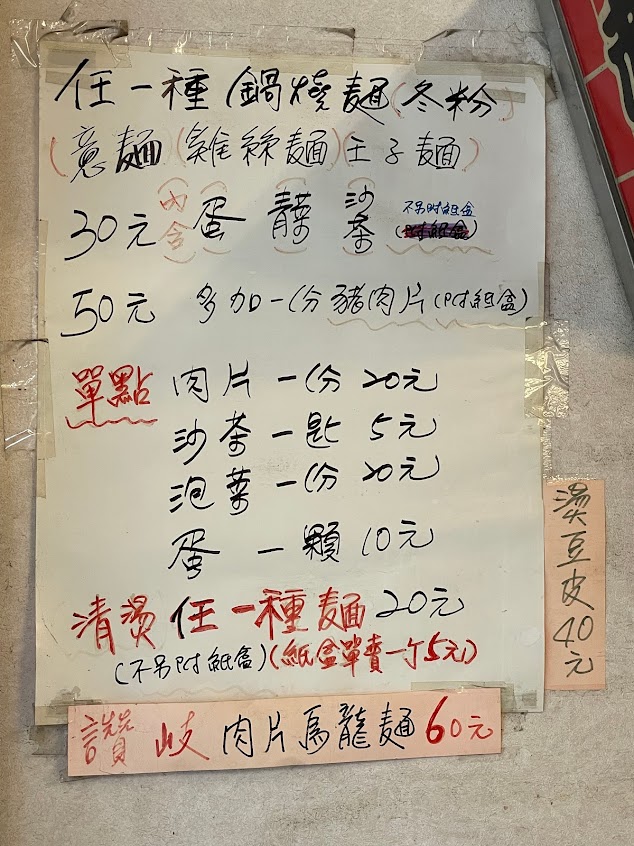 任一種鍋燒麵(冬粉)
(意麵)(雞絲麵)王子麵)
30元(內含)(蛋)(青菜)(沙茶)(不另附紙盒)
50元 多加一份豬肉片(附紙盒)
單點 肉片一份20元
沙茶一匙 5元
泡菜一份20元
蛋 一顆 10元
清燙任一種麵20元
(不另附紙盒)(紙盒單賣一个5元)
讚岐肉片烏龍麵60元
燙豆皮40元